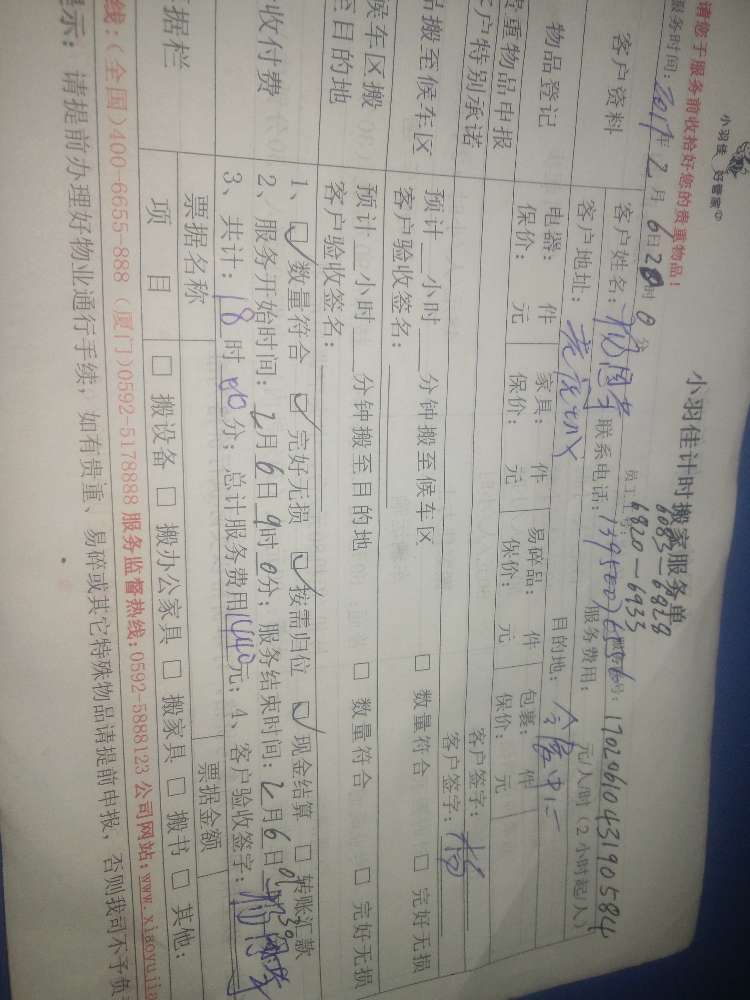 小羽佳 好管家
请您于服务前收拾好您的贵重物品！
小羽佳计时搬家服务单
服务时间：2017年2月6日 时0分
员工工号：6083-6828
6820-6933
17029610431905884
客户资料
客户姓名： 联系电话：
服务费用： 元/人/时（2小时起/人）
客户地址： 目的地：
物品登记
电器： 件 家具： 件 易碎品： 件 包裹： 件
保价： 元 保价： 元 保价： 元 保价： 元
贵重物品申报
客户签字：
客户特别承诺
客户签字：杨
品搬至候车区
预计 小时 分钟搬至候车区 □ 数量符合 □ 完好无损
客户验收签名：
候车区搬
至目的地
预计 小时 分钟搬至目的地 □ 数量符合 □ 完好无损
客户验收签名：
收付费
1、☑ 数量符合 ☑ 完好无损 ☑ 按需归位 ☑ 现金结算 □ 转账汇款
2、服务开始时间：2月6日9时0分；服务结束时间：2月6日
3、共计：18时00分；总计服务费用1440元；4、客户验收签字：
票据栏
票据名称 票据金额
项 目 □ 搬设备 □ 搬办公家具 □ 搬家具 □ 搬书 □ 其他:
线:(全国)400-6655-888 (厦门)0592-5178888 服务监督热线:0592-5888123 公司网站:www.xiaoyujia
示：请提前办理好物业通行手续；如有贵重、易碎或其它特殊物品请提前申报，否则我司不予负